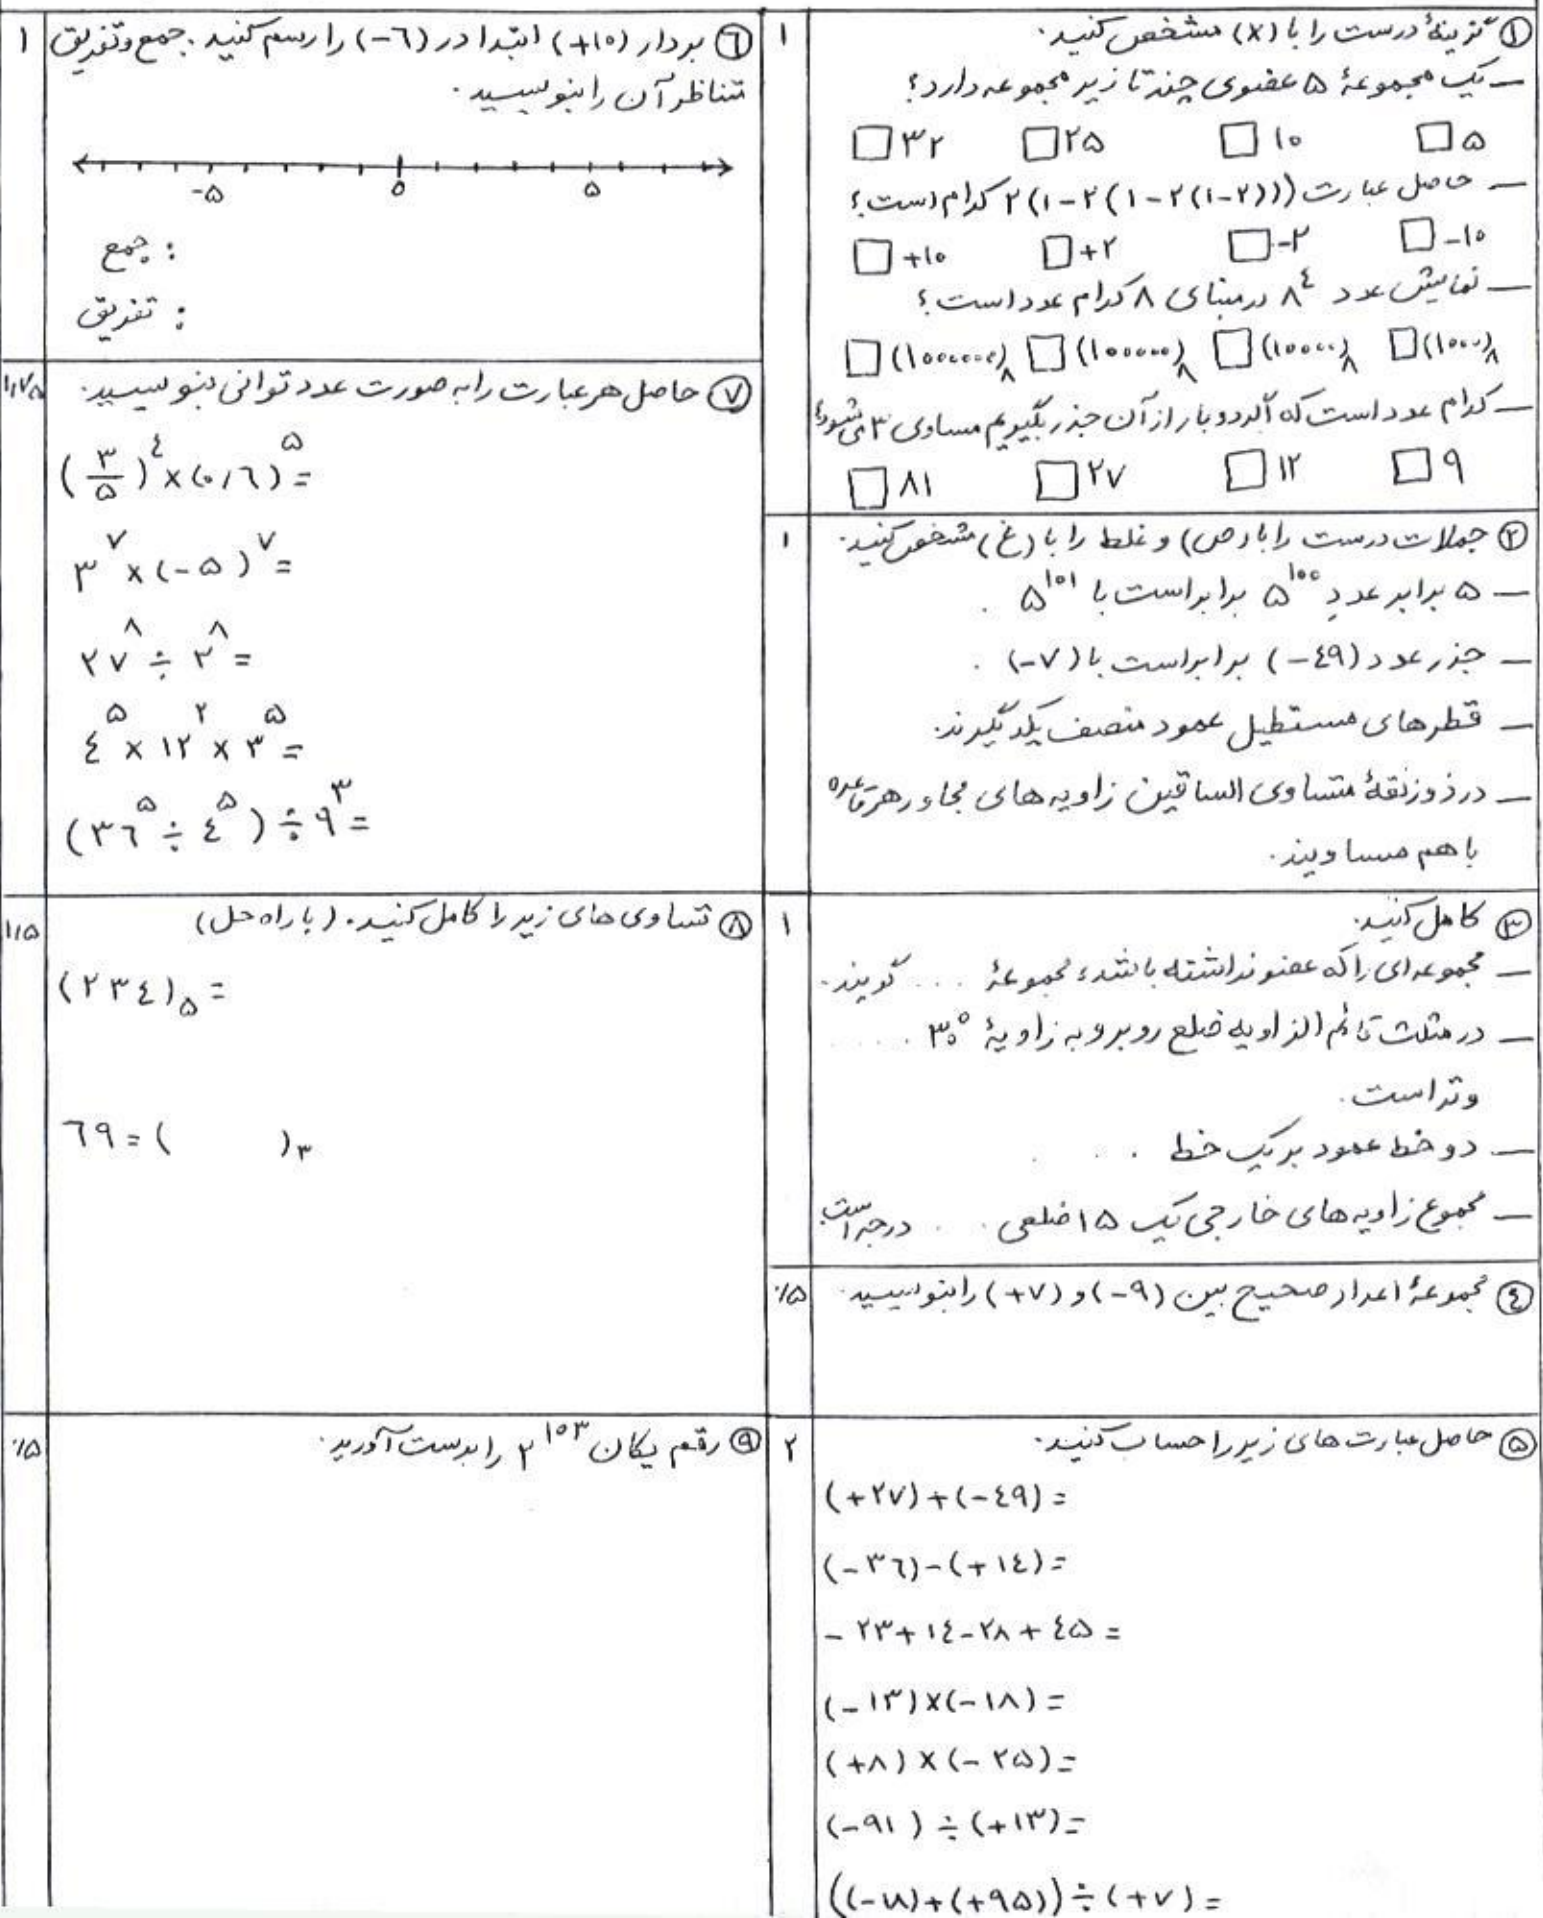 ① گزینهٔ درست را با (×) مشخص کنید. ۱
– یک مجموعهٔ ۵ عضوی چند تا زیر مجموعه دارد؟
□ ۵ □ ۱۰ □ ۲۵ □ ۳۲
– حاصل عبارت ۲(۱-۲(۱-۲(۱-۲))) کدام است؟
□ -۱۰ □ -۲ □ +۲ □ +۱۰
– نمایش عدد ۸^۴ در مبنای ۸ کدام عدد است؟
□ (۱۰۰۰)۸ □ (۱۰۰۰۰)۸ □ (۱۰۰۰۰۰)۸ □ (۱۰۰۰۰۰۰)۸
– کدام عدد است که اگر دو بار از آن جذر بگیریم مساوی ۳ می‌شود؟
□ ۹ □ ۱۲ □ ۲۷ □ ۸۱
② جملات درست را با (ص) و غلط را با (غ) مشخص کنید. ۱
– ۵ برابر عددِ ۵^۱۰۰ برابر است با ۵^۱۰۱ .
– جذر عدد (-۴۹) برابر است با (-۷) .
– قطرهای مستطیل عمود منصف یکدیگرند.
– در ذوزنقهٔ متساوی الساقین زاویه های مجاور هر قاعده
با هم مساویند.
③ کامل کنید. ۱
– مجموعه‌ای را که عضو نداشته باشد، مجموعهٔ .... گویند.
– در مثلث قائم الزاویه ضلع روبرو به زاویهٔ ۳۰° .....
وتر است.
– دو خط عمود بر یک خط . . .
– مجموع زاویه های خارجی یک ۱۵ ضلعی . . . درجه است
④ مجموعهٔ اعداد صحیح بین (-۹) و (+۷) را بنویسید. ٫۵
⑤ حاصل عبارت های زیر را حساب کنید. ۲
(+۲۷)+(-۴۹) =
(-۳۶)-(+۱۴) =
- ۲۳+۱۴-۲۸+۴۵ =
(-۱۳)×(-۱۸) =
(+۸)×(-۲۵) =
(-۹۱)÷(+۱۳) =
((-۱۸)+(+۹۵))÷(+۷) =
⑥ بردار (+۱۰) ابتدا در (-۶) را رسم کنید. جمع و تفریق ۱
متناظر آن را بنویسید.
-۵ ۰ ۵
جمع :
تفریق :
⑦ حاصل هر عبارت را به صورت عدد توانی بنویسید. ۱٫۷۵
(۳/۵)^۴×(۰٫۶)^۵ =
۳^۷×(-۵)^۷ =
۲۷^۸÷۳^۸ =
۴^۵×۱۲^۲×۳^۵ =
(۳۶^۵÷۴^۵)÷۹^۳ =
⑧ تساوی های زیر را کامل کنید. (با راه حل) ۱٫۵
(۲۳۴)۵ =
۶۹ = ( )۳
⑨ رقم یکان ۲^۱۰۳ را بدست آورید. ٫۵